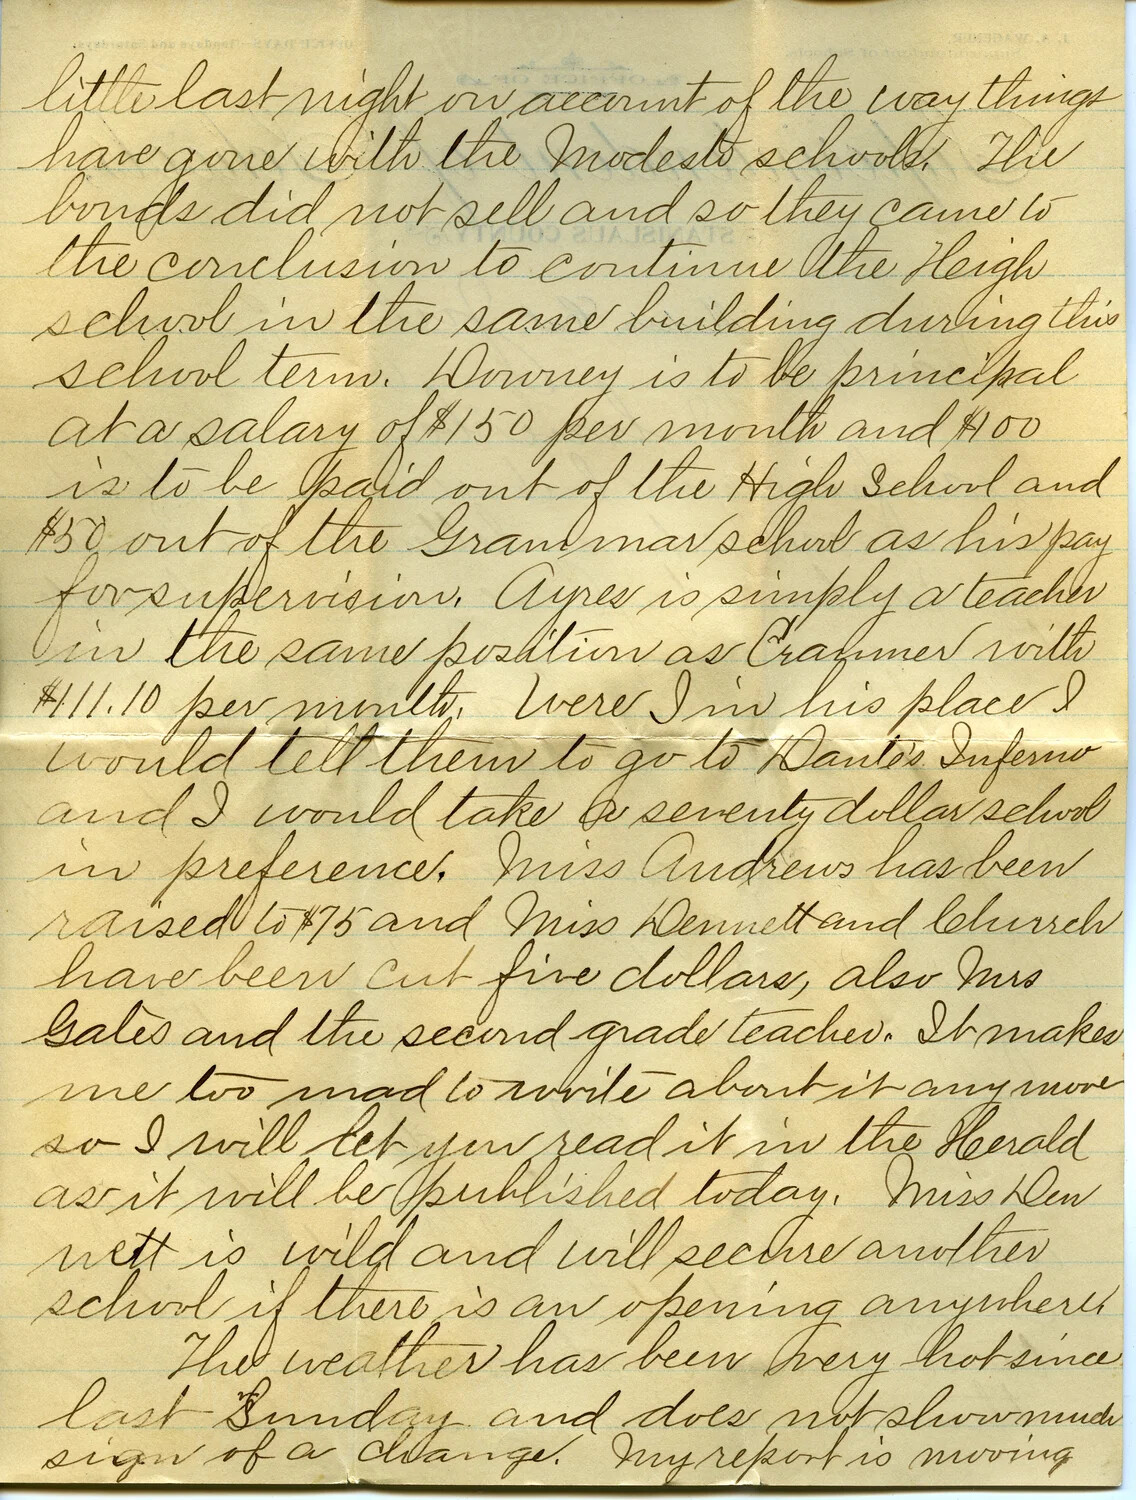 little last night on account of the way things
have gone with the Modesto schools. The
bonds did not sell and so they came to
the conclusion to continue the Heigh
school in the same building during this
school term. Downey is to be principal
at a salary of $150 per month and $100
is to be paid out of the High School and
$50 out of the Grammar school as his pay
for supervision. Ayres is simply a teacher
in the same position as Crammer with
$111.10 per month. Were I in his place I
would tell them to go to Dante's Inferno
and I would take a seventy dollar school
in preference. Miss Andrews has been
raised to $75 and Miss Dennett and Church
have been cut five dollars, also Mrs
Gates and the second grade teacher. It makes
me too mad to write about it any more
so I will let you read it in the Herald
as it will be published today. Miss Den
nett is wild and will secure another
school if there is an opening anywhere.
The weather has been very hot since
last Sunday and does not show much
sign of a change. My report is moving